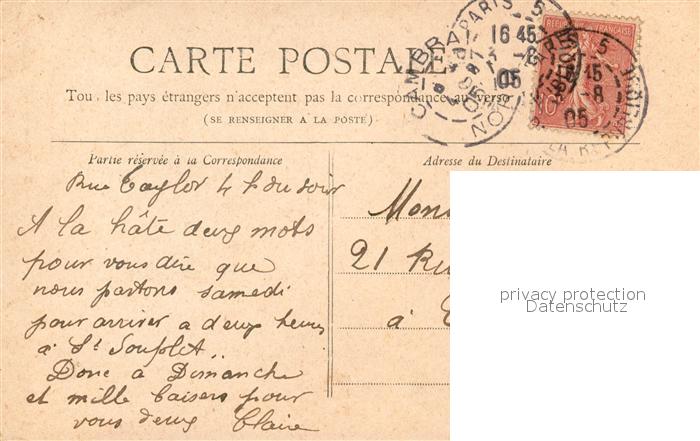 CARTE POSTALE
Tous les pays étrangers n'acceptent pas la correspondance au verso
(SE RENSEIGNER A LA POSTE)
Partie réservée à la Correspondance
Adresse du Destinataire
Rue Taylor 4 h du soir
A la hâte deux mots
pour vous dire que
nous partons samedi
pour arriver a deux heures
à St Souplet..
Donc à Dimanche
et mille baisers pour
vous deux Claire
Mons
21 Ru
à
privacy protection
Datenschutz
PARIS
5
16 45
8
05
CAMBRAI
NORD
5
15
8
05
10